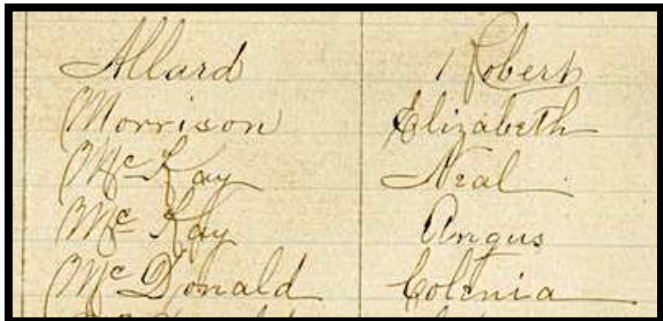 Allard Robert
Morrison Elizabeth
McKay Neal
McKay Angus
McDonald Colenia